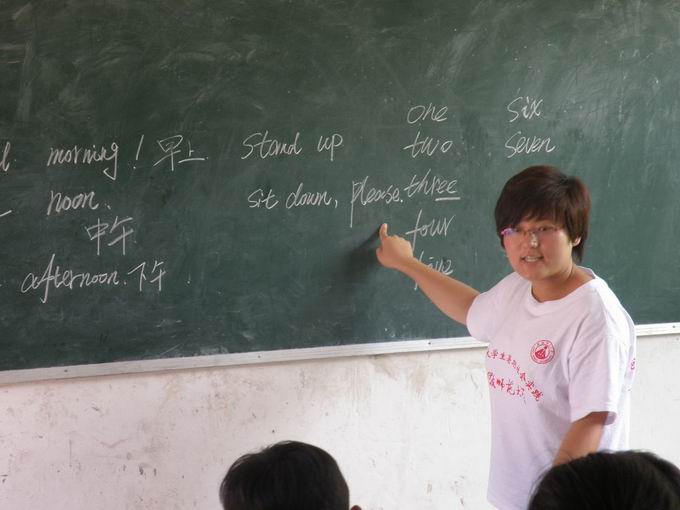 morning! 早上
noon.
中午
afternoon. 下午
stand up
sit down, please.
one
two
three
four
five
six
seven